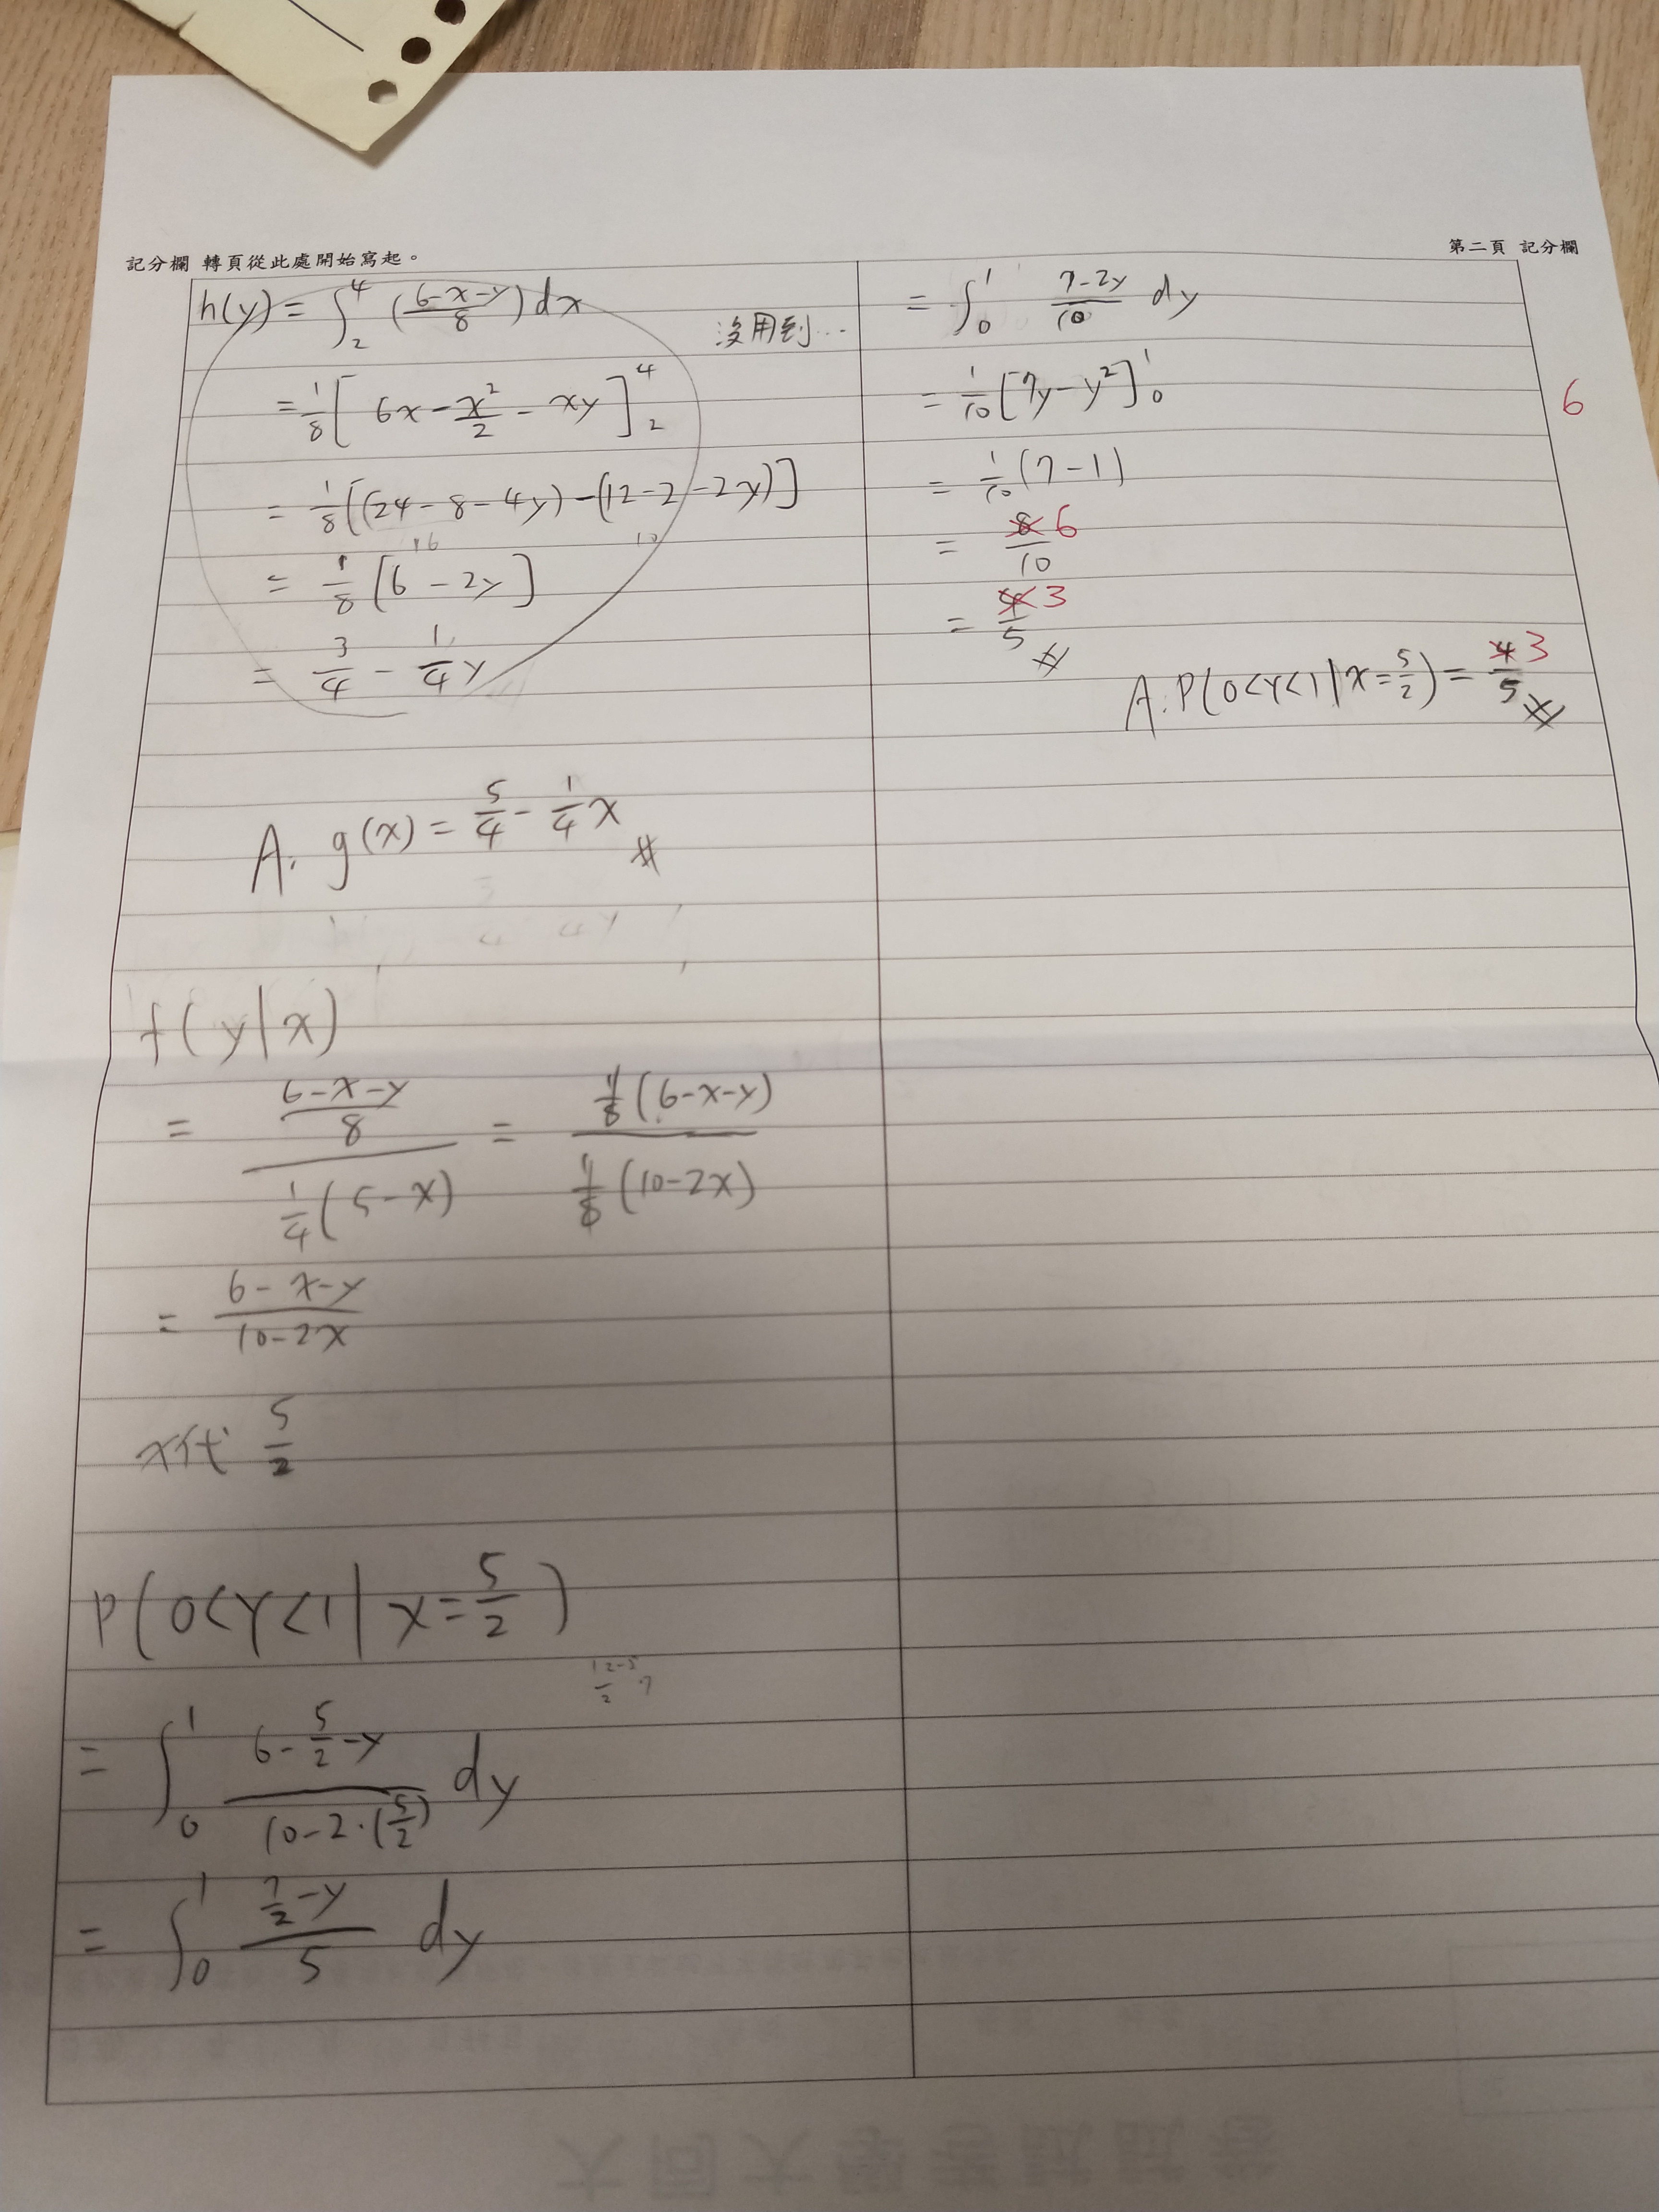 記分欄 轉頁從此處開始寫起。
第二頁 記分欄
h(y) = ∫₂⁴ ((6-x-y)/8) dx
沒用到...
= 1/8 [6x - x²/2 - xy]₂⁴
= 1/8 [(24-8-4y)-(12-2-2y)]
16 10
= 1/8 [6-2y]
= 3/4 - 1/4 y
A. g(x) = 5/4 - 1/4 x #
f(y|x)
= ((6-x-y)/8) / (1/4 (5-x)) = (1/8 (6-x-y)) / (1/8 (10-2x))
= (6-x-y)/(10-2x)
x代 5/2
P(0<Y<1 | x=5/2)
(12-5)/2 7
= ∫₀¹ (6-5/2-y)/(10-2·(5/2)) dy
= ∫₀¹ (7/2-y)/5 dy
= ∫₀¹ (7-2y)/10 dy
= 1/10 [7y-y²]₀¹
6
= 1/10 (7-1)
= 8/10 6
= 4/5 3 #
A. P(0<Y<1 | x=5/2) = 4/5 3 #